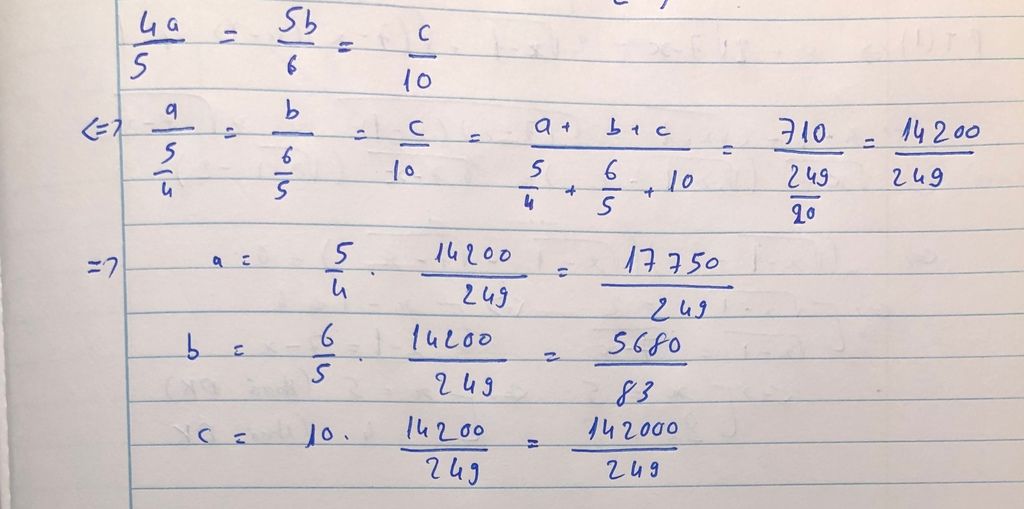 4a/5 = 5b/6 = c/10
<=> a/(5/4) = b/(6/5) = c/10 = (a + b + c)/(5/4 + 6/5 + 10) = 710/(249/20) = 14200/249
=> a = 5/4 . 14200/249 = 17750/249
b = 6/5 . 14200/249 = 5680/83
c = 10. 14200/249 = 142000/249